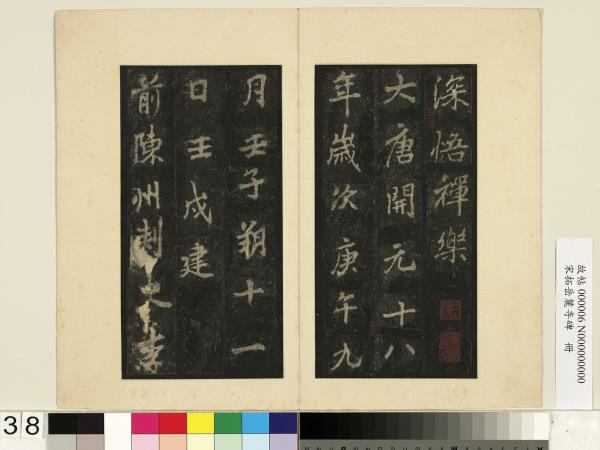 深悟禪樂
大唐開元十八
年歲次庚午九
月壬子朔十一
日壬戌建
前陳州刺史李
故帖 000006 N000000000
宋拓岳麓寺碑 冊
38